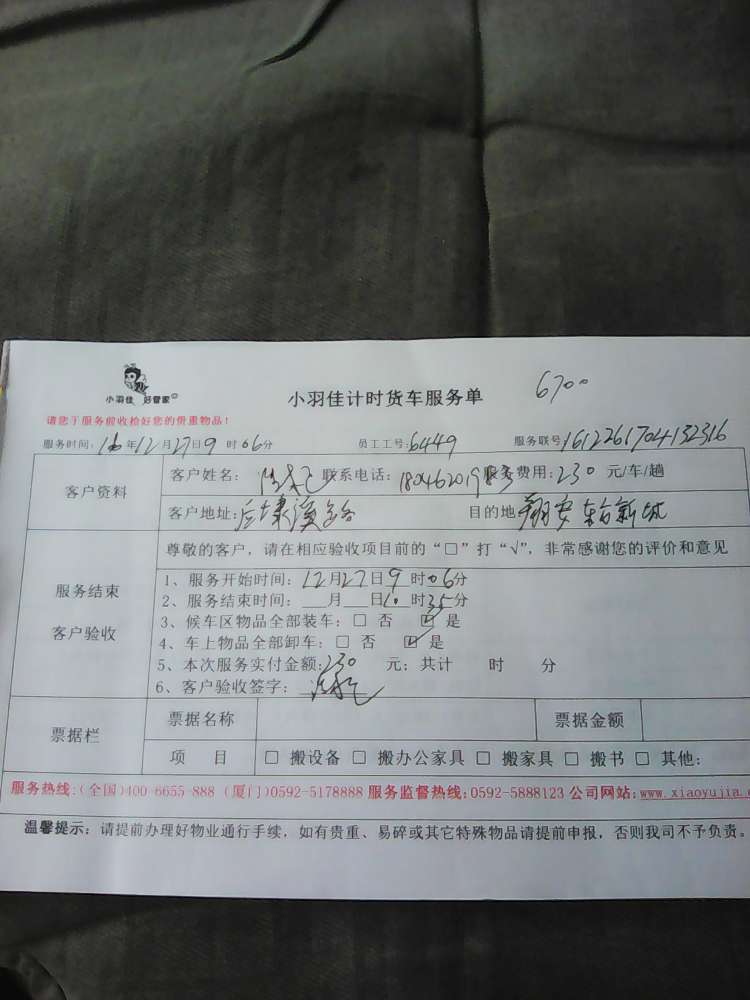 小羽佳 好管家
小羽佳计时货车服务单
6700
请您于服务前收检好您的贵重物品！
服务时间：16年12月27日9时06分 员工工号：6449 服务联号1612261704132316
客户资料
客户姓名： 联系电话：180462019 服务费用：230 元/车/趟
客户地址： 目的地 翔安 新城
服务结束
客户验收
尊敬的客户，请在相应验收项目前的“□”打“√”，非常感谢您的评价和意见
1、服务开始时间：12月27日9时06分
2、服务结束时间：___月___日10时35分
3、候车区物品全部装车：□ 否 ☑ 是
4、车上物品全部卸车：□ 否 ☑ 是
5、本次服务实付金额：230 元；共计 时 分
6、客户验收签字：
票据栏
票据名称 票据金额
项 目 □ 搬设备 □ 搬办公家具 □ 搬家具 □ 搬书 □ 其他：
服务热线：(全国)400-6655-888 (厦门)0592-5178888 服务监督热线：0592-5888123 公司网站：www.xiaoyujia.
温馨提示：请提前办理好物业通行手续，如有贵重、易碎或其它特殊物品请提前申报，否则我司不予负责。